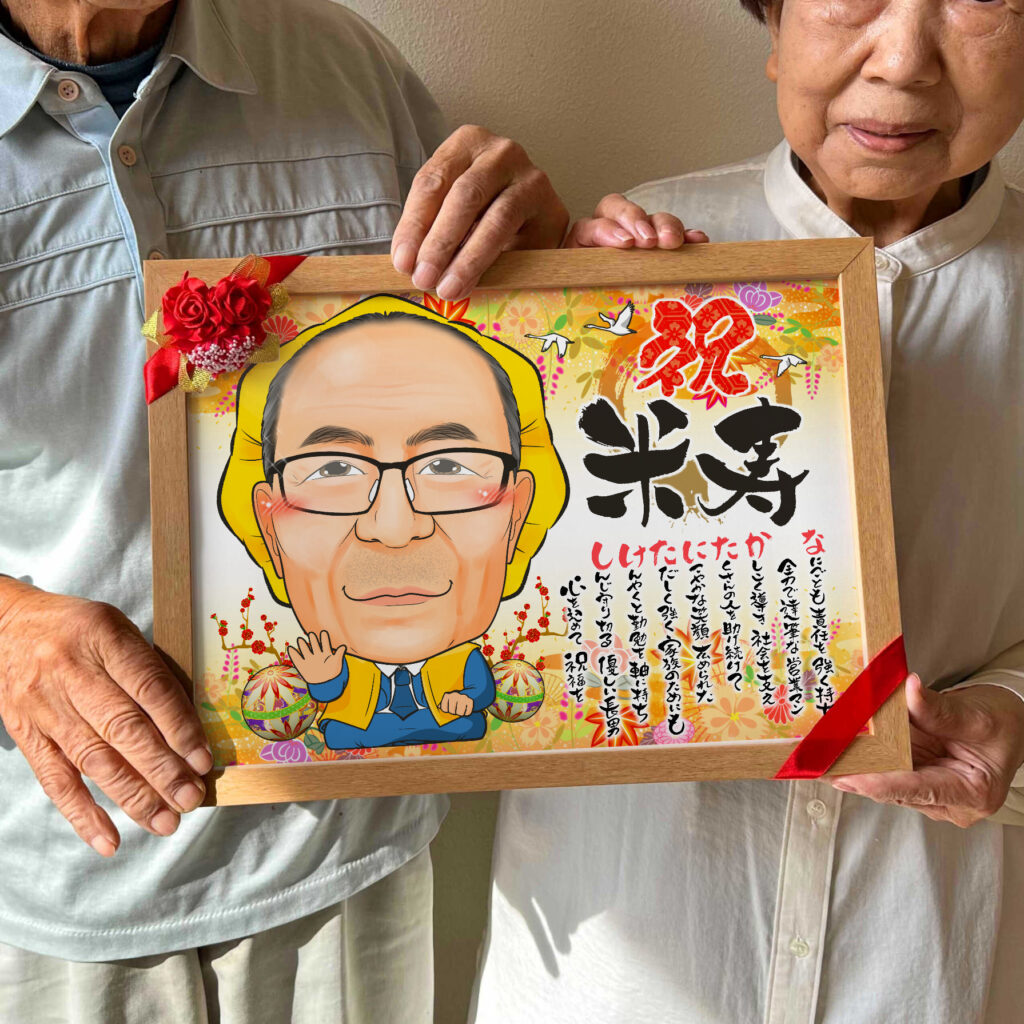 祝
米寿
なにごとも責任を強く持ち
全力で達筆な営業マン
かしこく導き 社会を支え
たくさんの人を助け続けて
にこやかな笑顔
ただしく強く家族のためにも
けんやくと勤勉を軸に持ち
しんじ守り切る 優しい長男
心を込めて 祝福を